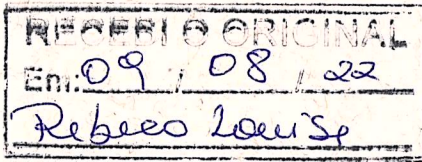 RECEBI O ORIGINAL
Em: 09 / 08 / 22
Rebeca Louise